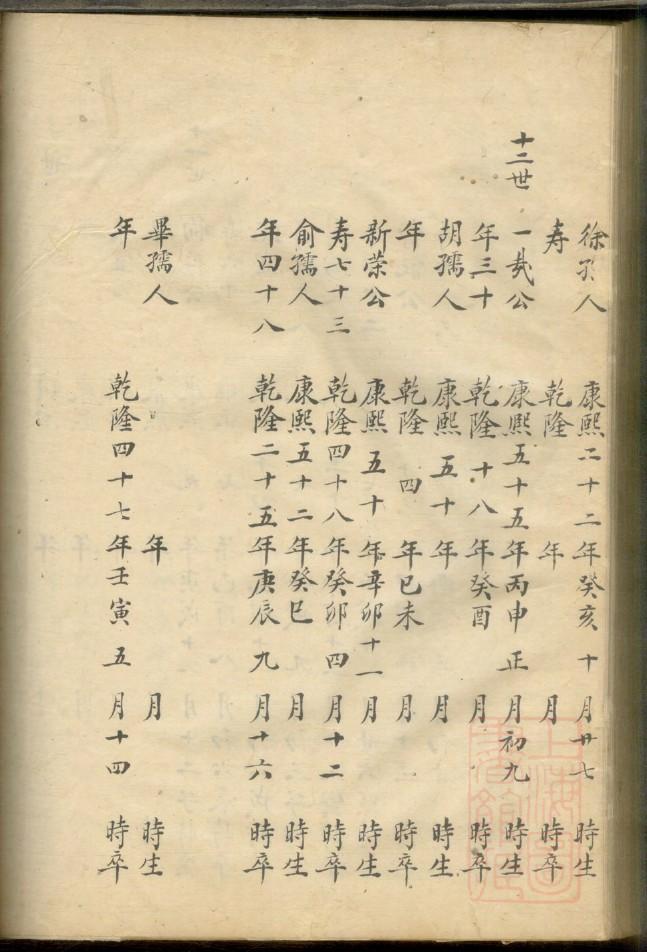 徐孺人 康熙二十二年癸亥十月廿七 時生
寿 乾隆 年 月 時卒
十二世 一茂公 康熙五十五年丙申正月初九 時生
年三十 乾隆十八年癸酉 月 時卒
胡孺人 康熙五十年 月 時生
年 乾隆四年已未 月 時卒
新荣公 康熙五十年辛卯十一月 時生
寿七十三 乾隆四十八年癸卯四月十二 時卒
俞孺人 康熙五十二年癸巳 月 時生
年四十八 乾隆二十五年庚辰九月十六 時卒
畢孺人 年 月 時生
年 乾隆四十七年壬寅五月十四 時卒